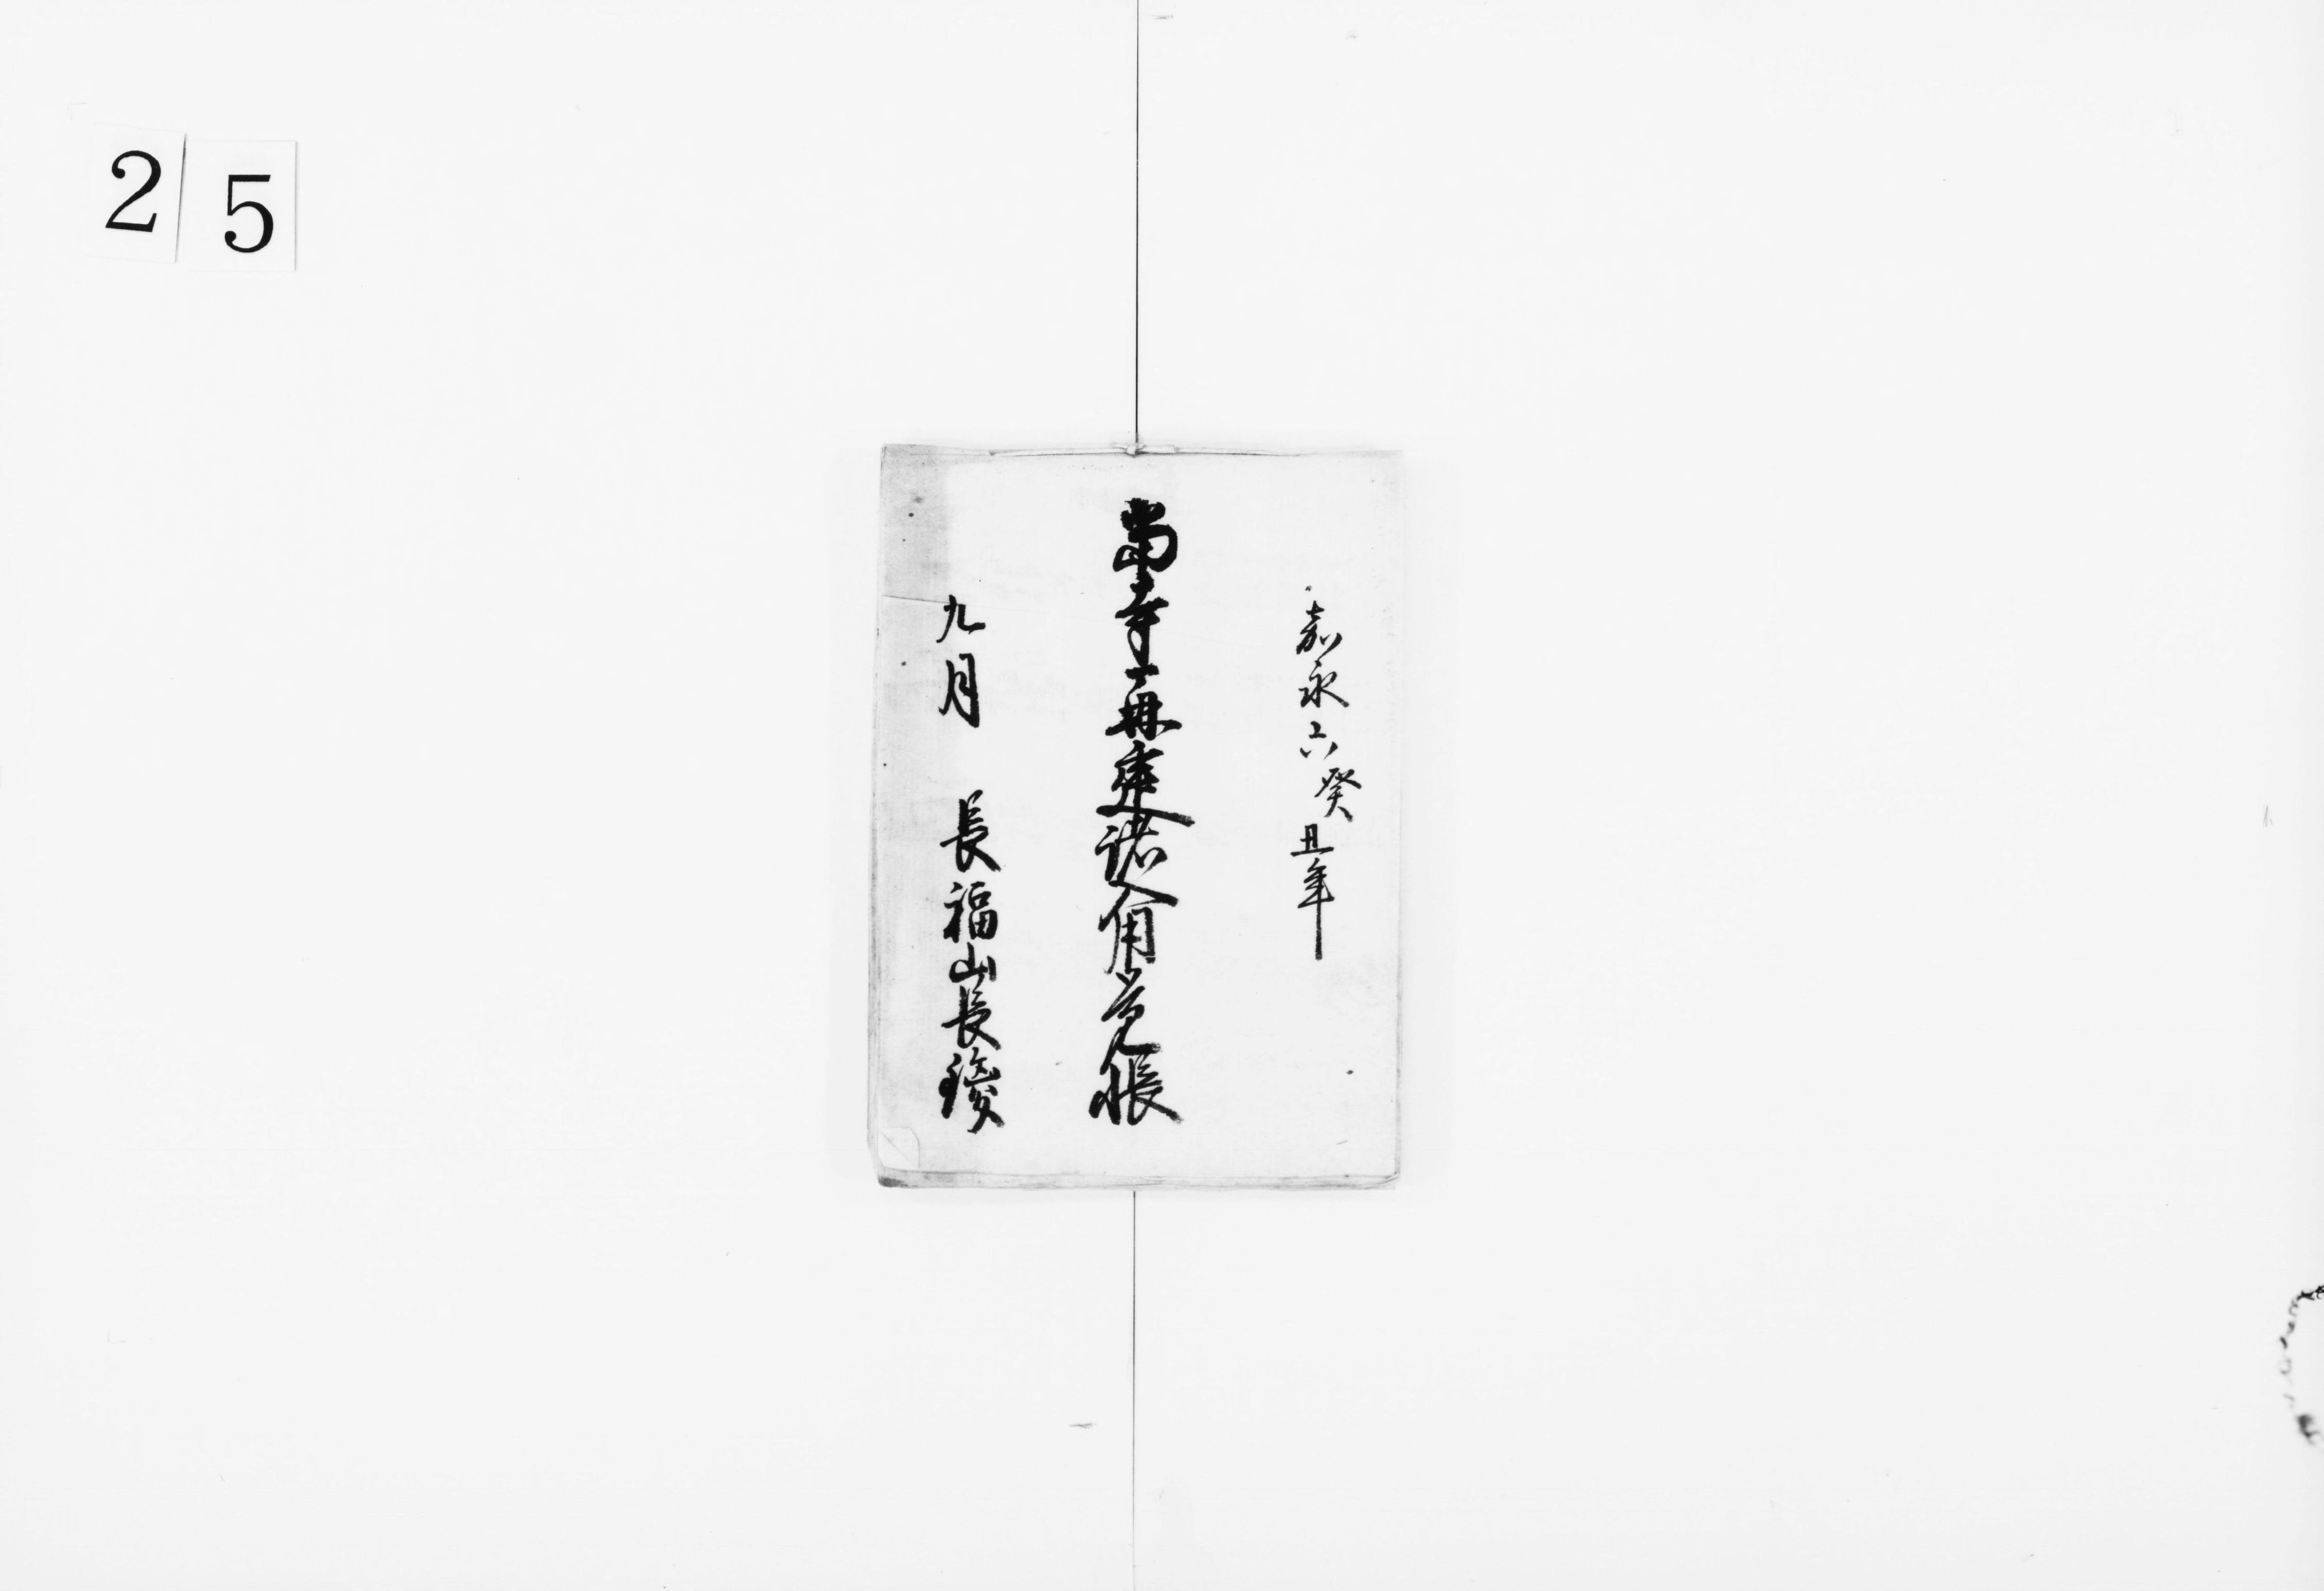 25
嘉永六癸丑年
當寺再建諸入用覚帳
九月 長福山長